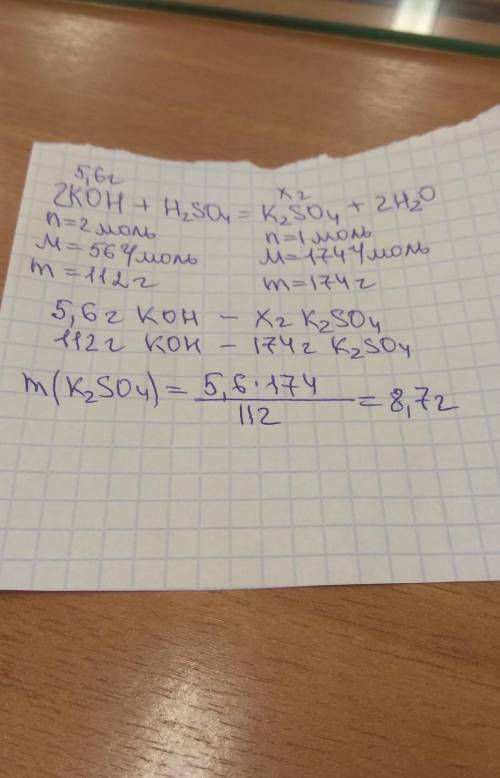 5,6г хг
2KOH + H₂SO₄ = K₂SO₄ + 2H₂O
n=2моль n=1моль
M=56г/моль M=174г/моль
m=112г m=174г
5,6г KOH – хг K₂SO₄
112г KOH – 174г K₂SO₄
m(K₂SO₄) = 5,6·174 / 112 = 8,7г